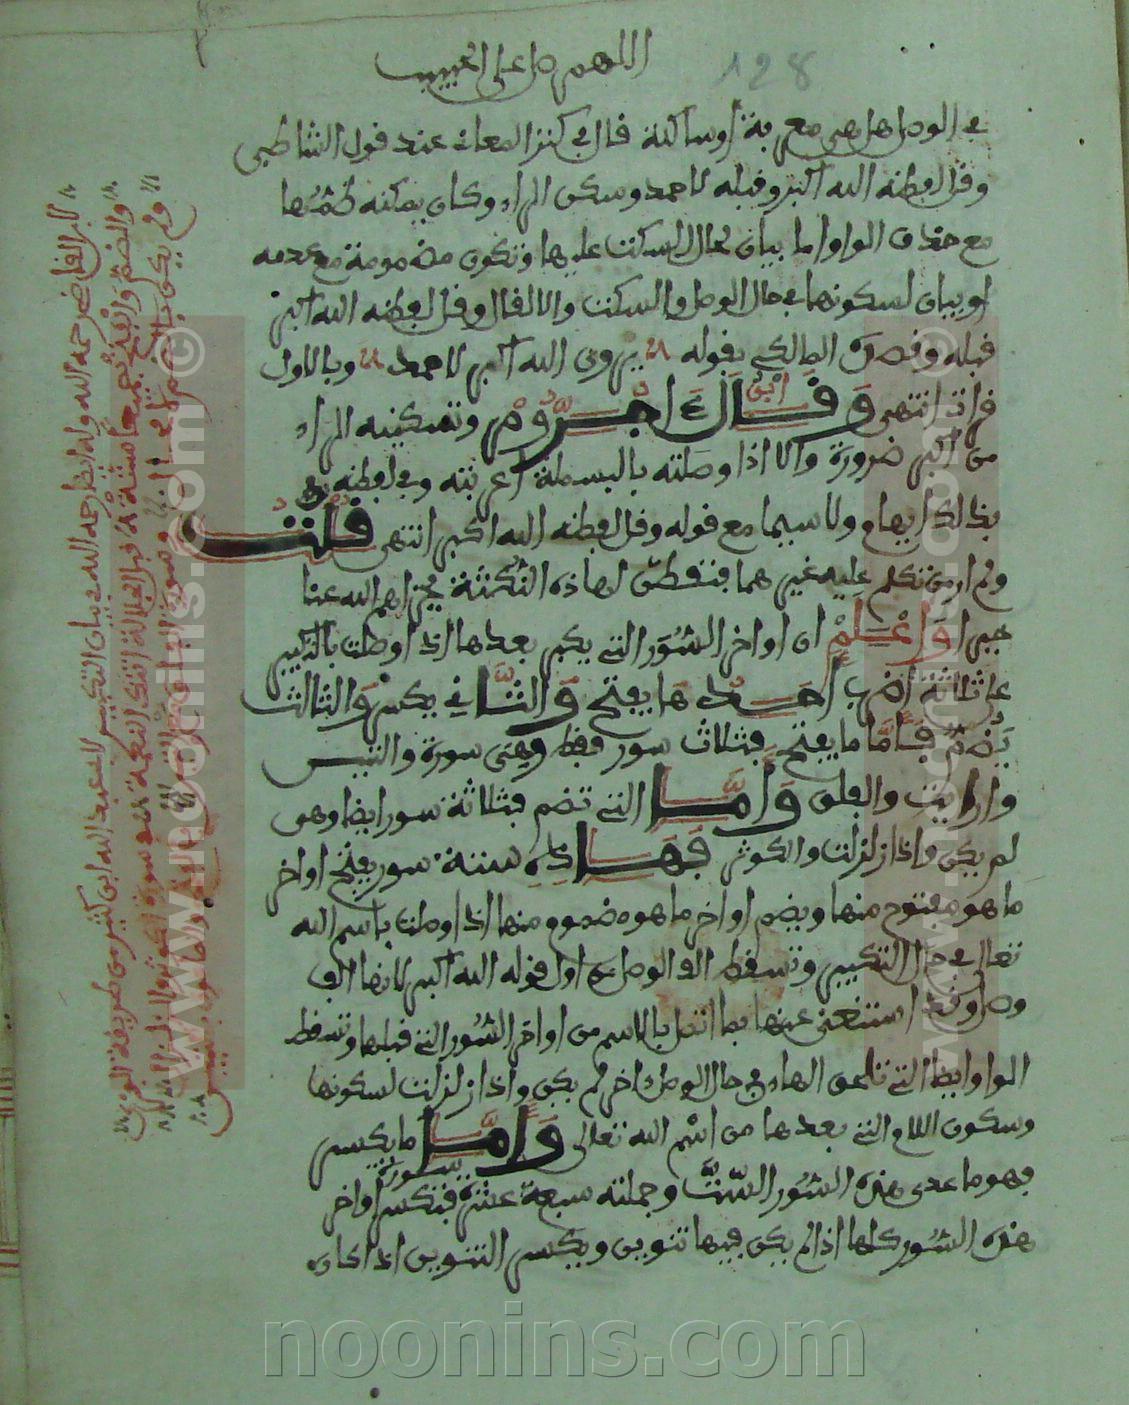 اللهم صل على الحبيب
128
في الوصل هل هي معربة أو ساكنة قال في كنز المعاني عند قول الشاطبي
وقل لفظه الله أكبر وقبله لأحمد وسكن الراء وكان يمكنه ضمها
مع حذف الواو إما بيان لحال السكت عليها وتكون مضمومة مع عدمه
أو بيان لسكونها في حال الوصل والسكت وإلا لقال وقل لفظه الله أكبر
قبله وفصل المالكي بقوله يروى الله أكبر لأحمد وبالأول
قرأت انتهى وقال ابن اجروم وتسكينه الراء
من أكبر ضرورة وإلا إذا وصلته بالبسملة أعربته وفي لفظه
بذلك إيهام ولا سيما مع قوله وقل لفظه الله أكبر انتهى قلت
ولم أر من تكلم عليه غيرهما فتفطن لهاذه النكتة جزاهم الله عنا
خيرا واعلم أن أواخر السور التي يكبر بعدها إذا وصلت بالتكبير
على ثلاثة أضرب أحدها يفتح والثاني يكسر والثالث
يضم فأما ما يفتح فثلاث سور فقط وهي سورة والتين
وأرايت والفلق وأما التي تضم فثلاثة سور أيضا وهي
لم يكن وإذا زلزلت والكوثر فهاذه ستة سور يفتح أواخر
ما هو مفتوح منها ويضم أواخر ما هو مضموم منها إذا وصلت باسم الله
تعالى في حال التكبير وتسقط ألف الوصل من أول قوله الله أكبر لأنها ألف
وصل وقد استغني عنها بما اتصل بالاسم من أواخر السور التي قبلها وتسقط
الواو أيضا التي تلحق الهاء في حال الوصل آخر لم يكن وإذا زلزلت لسكونها
وسكون اللام التي بعدها من اسم الله تعالى وأما ما يكسر
فهو ما عدى هذه السور الست وجملته سبعة عشر سورة فتكسر أواخر
هذه السور كلها إذا لم يكن فيها تنوين ويكسر التنوين إذا كان
لابن القاضي رحمه الله وله أيضا رحمه الله في بيان التكبير لعبد الله ابن كثير من طريقة
noonins.com
www.noonins.com ©
www.noonins.com ©